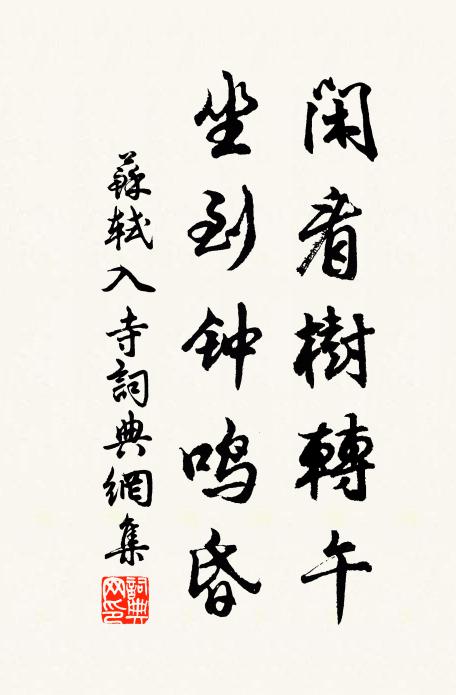 閑看樹轉午
坐到钟鸣昏
蘇軾入寺詞典網集
詞典网印